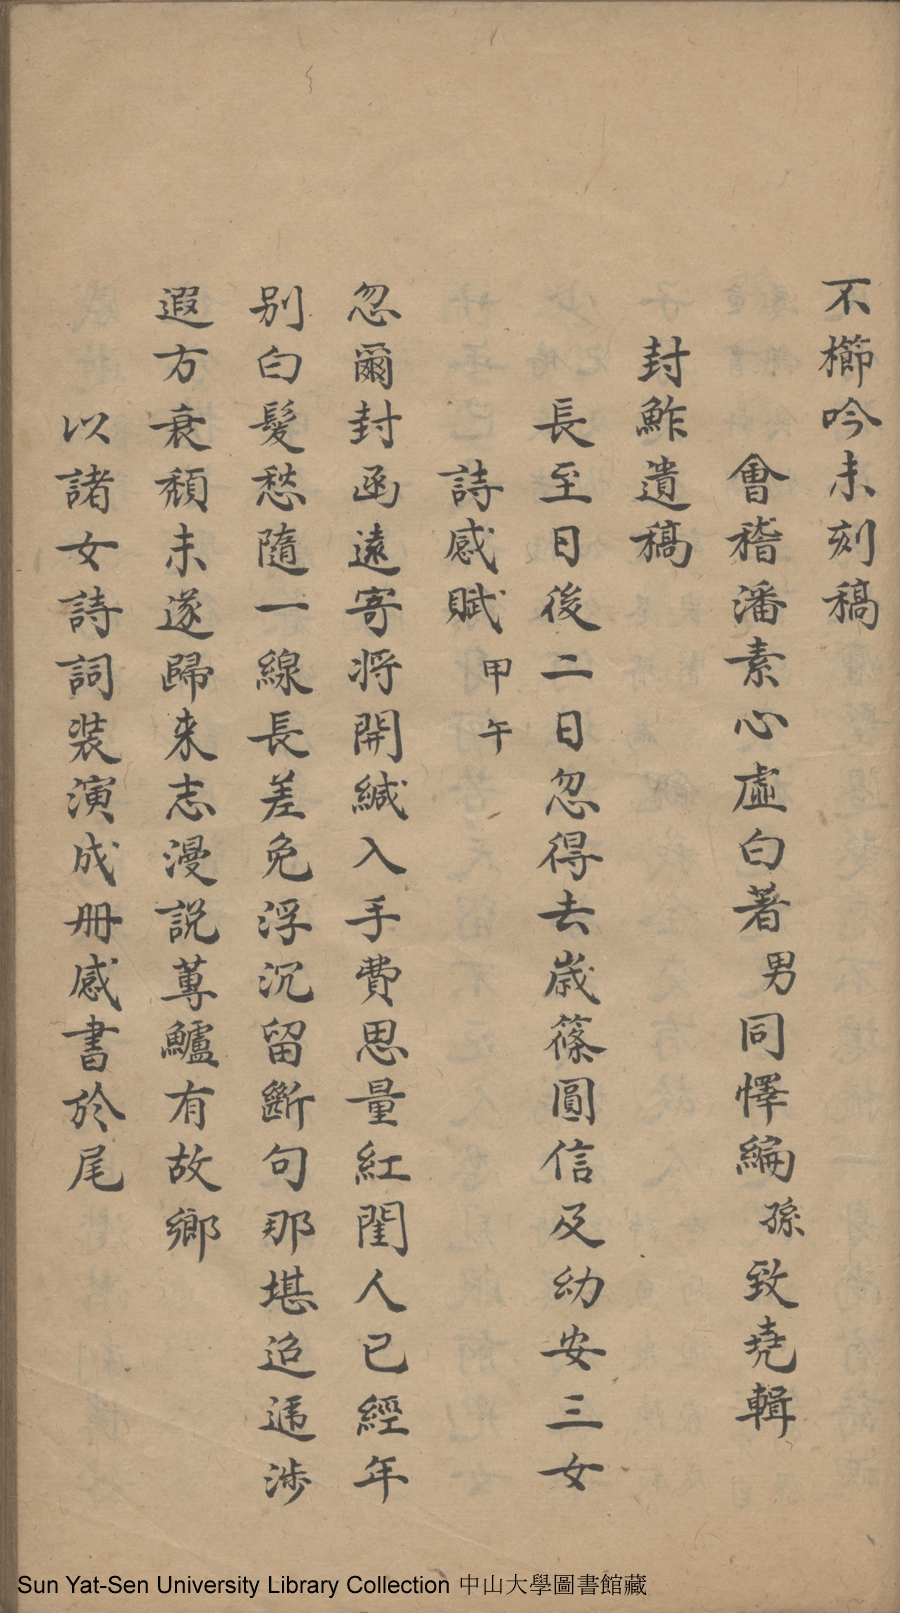 不櫛吟未刻稿
會稽潘素心虛白著男同懌編孫致堯輯
封鮓遺稿
長至日後二日忽得去歲篠圓信及幼安三女
詩感賦甲午
忽爾封函遠寄將開緘入手費思量紅閨人已經年
别白髮愁隨一線長差免浮沉留斷句那堪迢遞涉
遐方衰頹未遂歸来志漫説蓴鱸有故鄉
以諸女詩詞裝演成册感書於尾
Sun Yat-Sen University Library Collection 中山大學圖書館藏